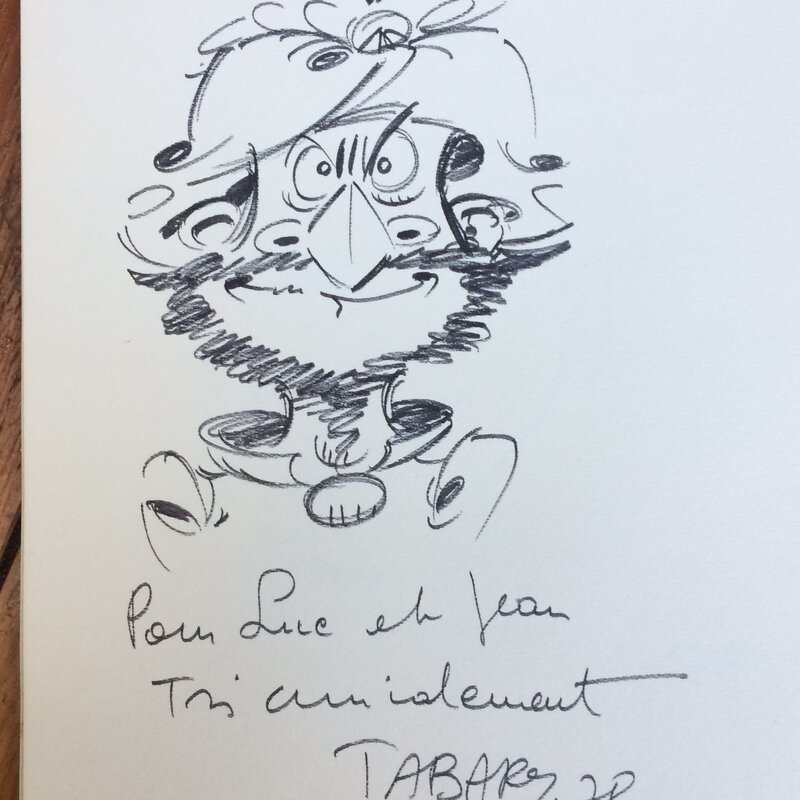 Pour Luc et Jean
Tri amicalement
TABARY 78